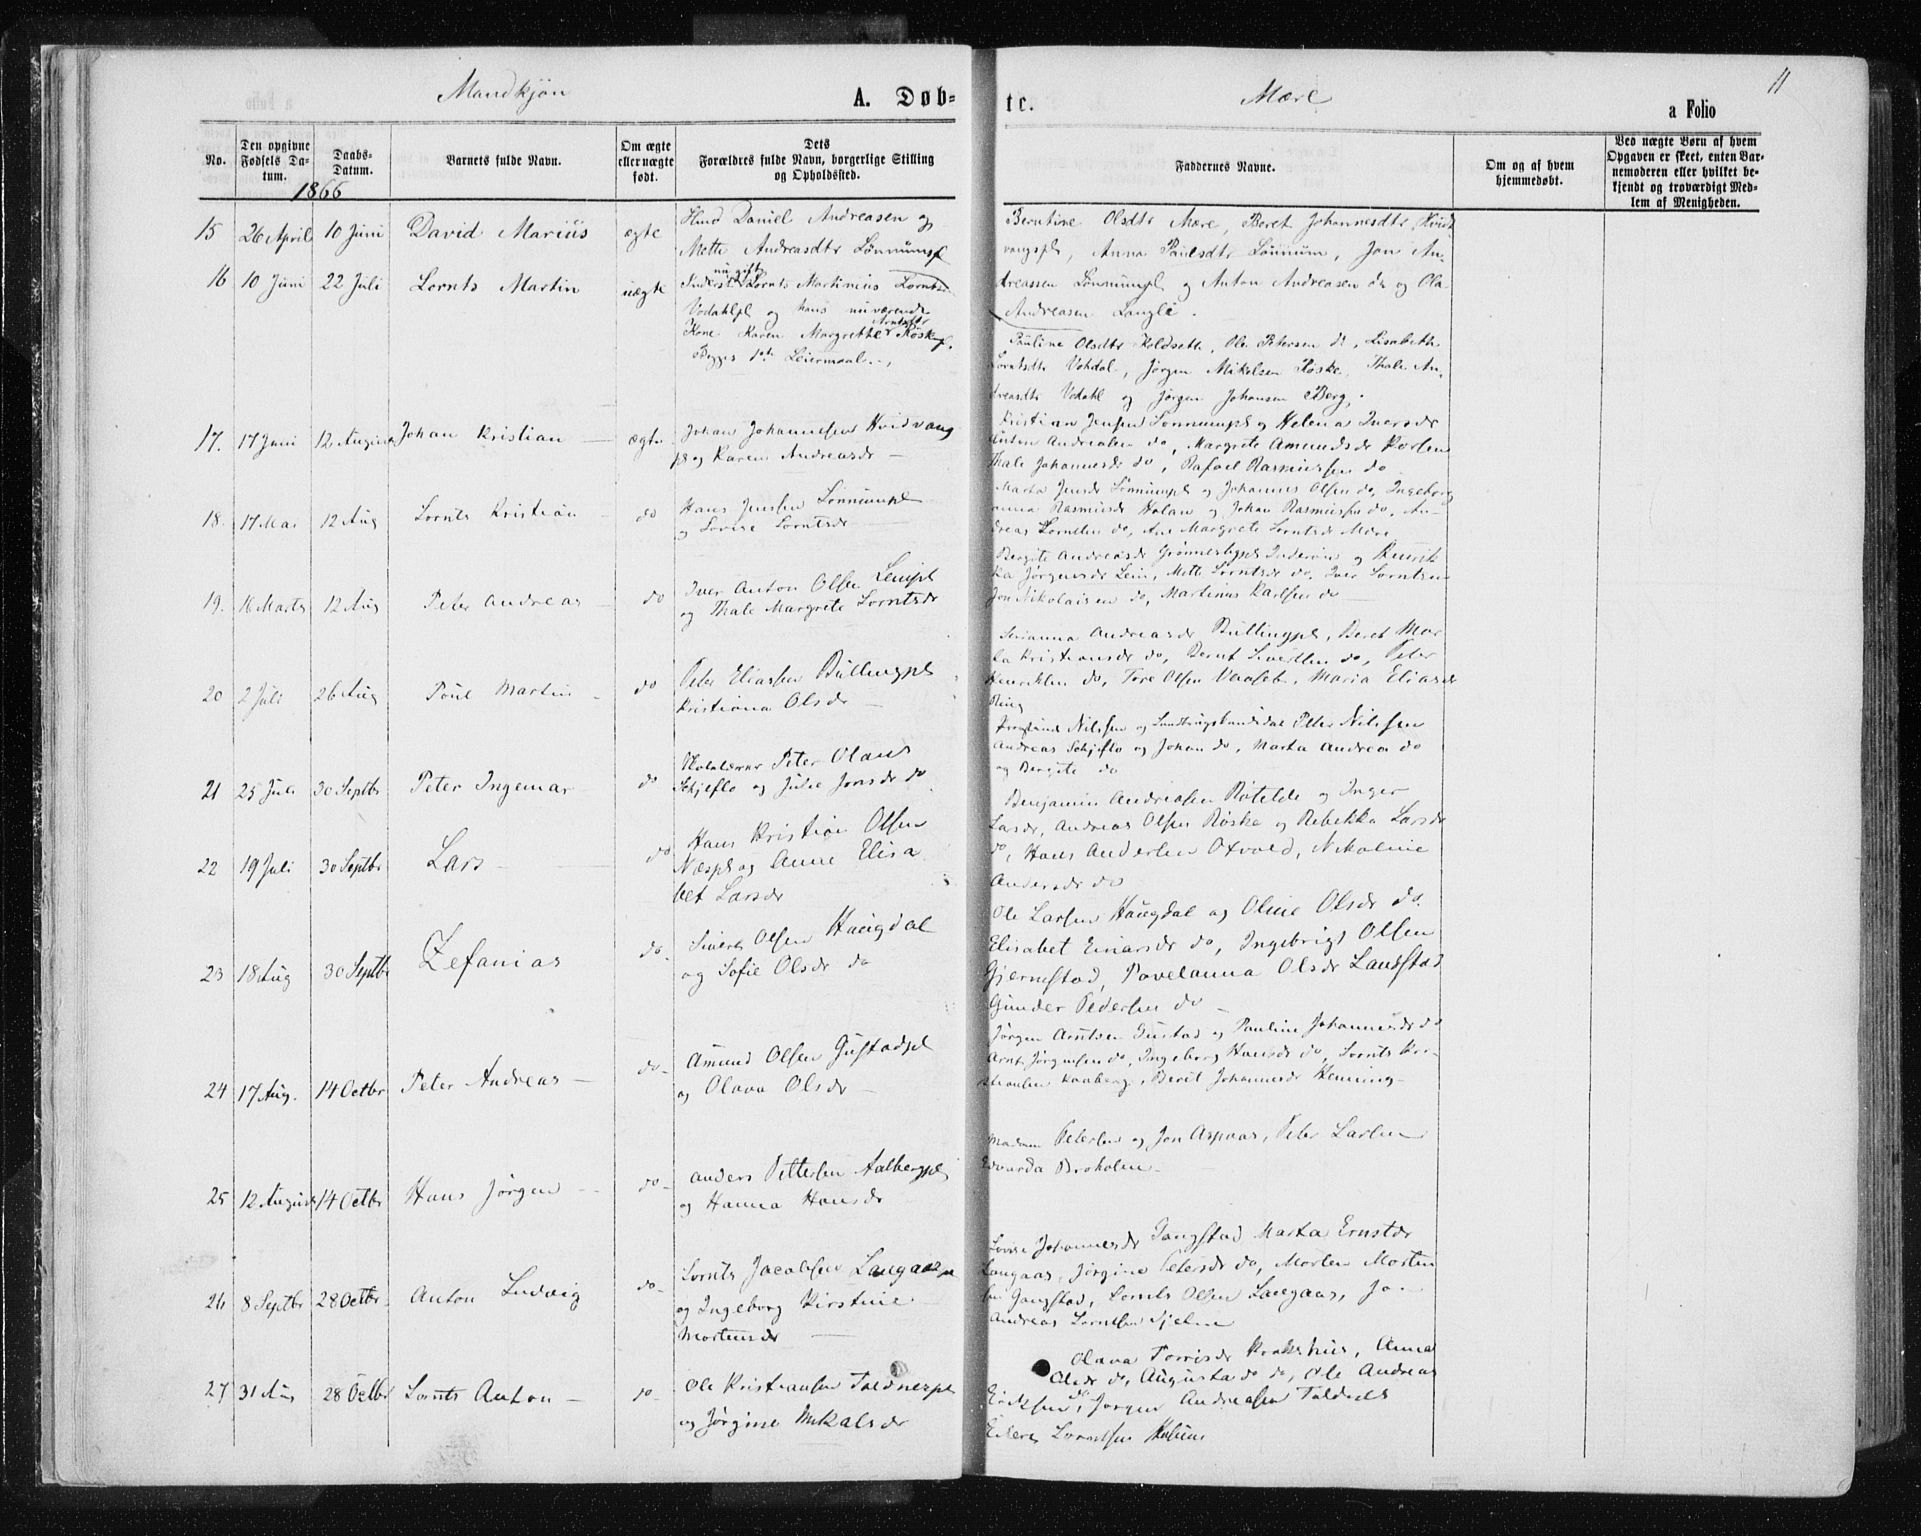 Mandkjøn
A. Døb-
te.
Mære
a Folio
11
No.
Den opgivne Fødsels Datum.
Daabs-Datum.
Barnets fulde Navn.
Om ægte eller uægte født.
Dets Forældres fulde Navn, borgerlige Stilling og Opholdssted.
Faddernes Navne.
Om og af hvem hjemmedøbt.
Ved uægte Børn af hvem Opgaven er skeet, enten Barnemoderen eller hvilket bekjendt og troværdigt Medlem af Menigheden.
1866
15 26 April 10 Juni David Marius ægte
Daniel Andreasen og
Mette Andreasdtr Lønnumpl
Berntine Olsdtr Mære, Beret Johannesdtr Hvid
vangspl, Anna Paulsdtr Lønnum, Jon An-
dreassen Lønnumpl og Anton Andreasen do og Ola
Andreasen Langli.
16 10 Juni 22 Juli Lornts Martin uægte
nu gift
Inderst Lornts Martinius Lorntsen
Vodahlpl og hans nuværende
Kone Karen Margrethe Arntsdtr Røskepl.
Begges 1ste Leiermaal.
Pauline Olsdtr Holdseth, Ole Petersen do, Lisabeth
Lorntsdtr Vohdal, Jørgen Mikelsen Røske, Thale An-
dreasdtr Vodahl og Jørgen Johansen Berg.
17. 17 Juni 12 August Johan Kristian — ægte
Johan Johannessen Hvidvang
pl og Karen Andreasdr —
Kristian Jensen Lønnumpl og Helena Iversdr
Anton Andreasen do, Margrete Amundsdr
Thale Johannesdr do, Rafael Rasmussen do
18. 17 Mai 12 Aug Lornts Kristian — do
Hans Jensen Lønnumpl
og Lovise Lorntsdr
Marta Jensdr Lønnumpl og Johannes Olsen do, Ingeborg
anna Rasmusdr Holan og Johan Rasmussen do, An-
dreas Lorntsen do, Ane Margrete Lorntsdr Mære
19. 16 Marts 12 Aug Peter Andreas — do
Iver Anton Olsen Leinpl
og Thale Margrete Lorntsdr
Bergite Andreasdr Inderøen og Henrik
ka Jørgensdr Lein, Mette Lorntsdr do, Iver Lorntsen
Jon Nikolaisen do, Martinus Karlsen do —
20 2 Juli 26 Aug Poul Martin — do
Peter Eliassen Bullingpl
Kristiana Olsdr —
Serianna Andreasdr Bullingpl, Beret Mar
ta Kristiansdr do, Bernt Sivertsen do, Peter
Henriksen do, Tore Olsen, Maria Eliasdr
Ring
21 25 Juli 30 Septbr Peter Ingemar — do
Skolelærer Peter Olaus
Schjeflo og Julie Jonsdr do
Nilssen og Landbrugskandidat Peter Nilssen
Andreas Schjeflo og Johan do, Marta Andrea do
og Bergite do
22 19 Juli 30 Septbr Lars — do
Hans Kristian Olsen
Næspl og Anne Elisa
bet Larsdr
Benjamin Andreasen og Inger
Larsdr, Andreas Olsen Røske og Rebekka Larsdr
do, Hans Andersen Oxvold, Nikoline
Andersdr do
23 18 Aug 30 Septbr Zefanias do.
Sivert Olsen Haugdal
og Sofie Olsdr do
Ole Larsen Haugdal og Oline Olsdr do.
Elisabet Einarsdr do, Ingebrigt Olsen
Gjermstad, Povelanna Olsdr Langstad
Gunder Pedersen do —
24 17 Aug. 14 Octbr Peter Andreas — do —
Amund Olsen Gustadpl
og Olava Olsdr —
Jørgen Arntsen Gustad og Pauline Johannesdr do
Arnt Jørgensen do, Ingeborg Hansdr do, Lornts Kri-
stiansen, Berit Johannesdr Henning —
25 12 August 14 Octbr Hans Jørgen — do —
Anders Pettersen Aalbergpl
og Hanna Hansdr
Madam Petersen og Jon Aspaas, Peter Larsen
Edvarda Broholm —
26 8 Septbr 28 Octbr Anton Ludvig do —
Lornts Jacobsen Langaaspl
og Ingeborg Kirstine
Mortensdr —
Lovise Johannesdr Gangstad Marta Ernstdr
Langaas, Jørgine Petersdr do, Morten Morten
sen Gangstad, Lornts Olsen Langaas, Jo-
Andreas Lorntsen
27 31 Aug 28 Octbr Lornts Anton — do —
Ole Kristiansen Taldnespl
og Jørgine Mikalsdr
Olava Torrisdr, Anna
Olsdr do, Augusta do do, Ole Andreas
Eriksen do, Jørgen Andreasen Taldnes
Lorntsen